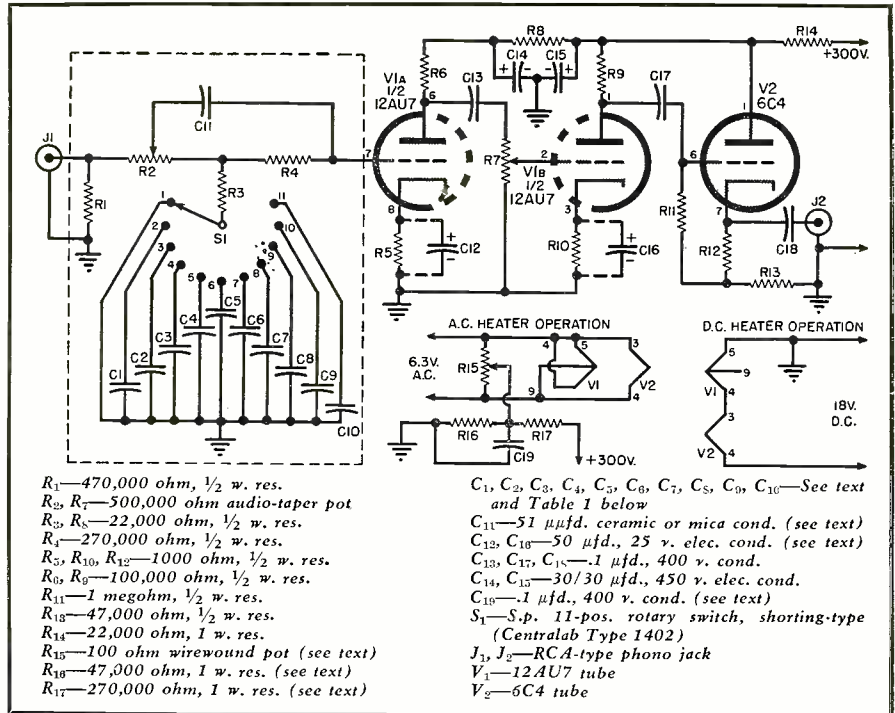 R8
R14
+300V.
C14
C15
R6
V1A
1/2
12AU7
6
C13
R9
1
C17
V2
6C4
1
J1
C11
R2
R4
7
R3
R1
S1
1
2
3
4
5
6
7
8
9
10
11
R7
2
V1B
1/2
12AU7
6
R11
7
J2
8
R5
C12
3
R10
C16
R12
C18
R13
C1
C2
C3
C4
C5
C6
C7
C8
C9
C10
A.C. HEATER OPERATION
6.3V.
A.C.
R15
4
5
3
V1
V2
9
4
R16
R17
C19
+300V.
D.C. HEATER OPERATION
5
9
V1
4
3
V2
4
18V.
D.C.
R1—470,000 ohm, 1/2 w. res.
R2, R7—500,000 ohm audio-taper pot
R3, R8—22,000 ohm, 1/2 w. res.
R4—270,000 ohm, 1/2 w. res.
R5, R10, R12—1000 ohm, 1/2 w. res.
R6, R9—100,000 ohm, 1/2 w. res.
R11—1 megohm, 1/2 w. res.
R13—47,000 ohm, 1/2 w. res.
R14—22,000 ohm, 1 w. res.
R15—100 ohm wirewound pot (see text)
R16—47,000 ohm, 1 w. res. (see text)
R17—270,000 ohm, 1 w. res. (see text)
C1, C2, C3, C4, C5, C6, C7, C8, C9, C10—See text
and Table 1 below
C11—51 μμfd. ceramic or mica cond. (see text)
C12, C16—50 μfd., 25 v. elec. cond. (see text)
C13, C17, C18—.1 μfd., 400 v. cond.
C14, C15—30/30 μfd., 450 v. elec. cond.
C19—.1 μfd., 400 v. cond. (see text)
S1—S.p. 11-pos. rotary switch, shorting-type
(Centralab Type 1402)
J1, J2—RCA-type phono jack
V1—12AU7 tube
V2—6C4 tube